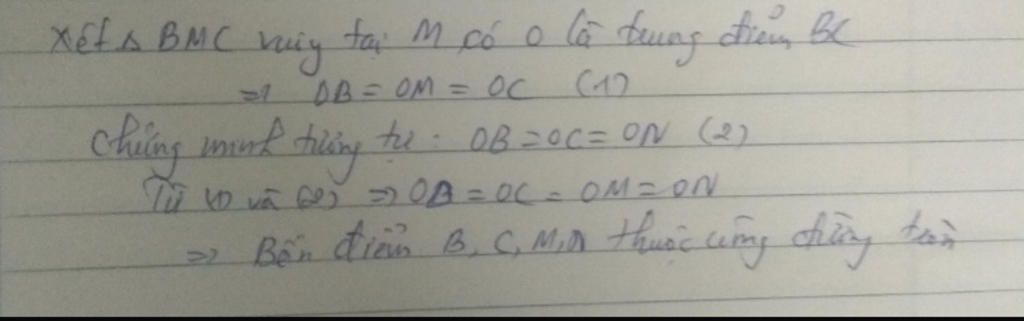 Xét Δ BMC vuông tại M có O là trung điểm BC
=> OB = OM = OC (1)
Chứng minh tương tự : OB = OC = ON (2)
Từ (1) và (2) => OB = OC = OM = ON
=> Bốn điểm B, C, M, N thuộc cùng đường tròn